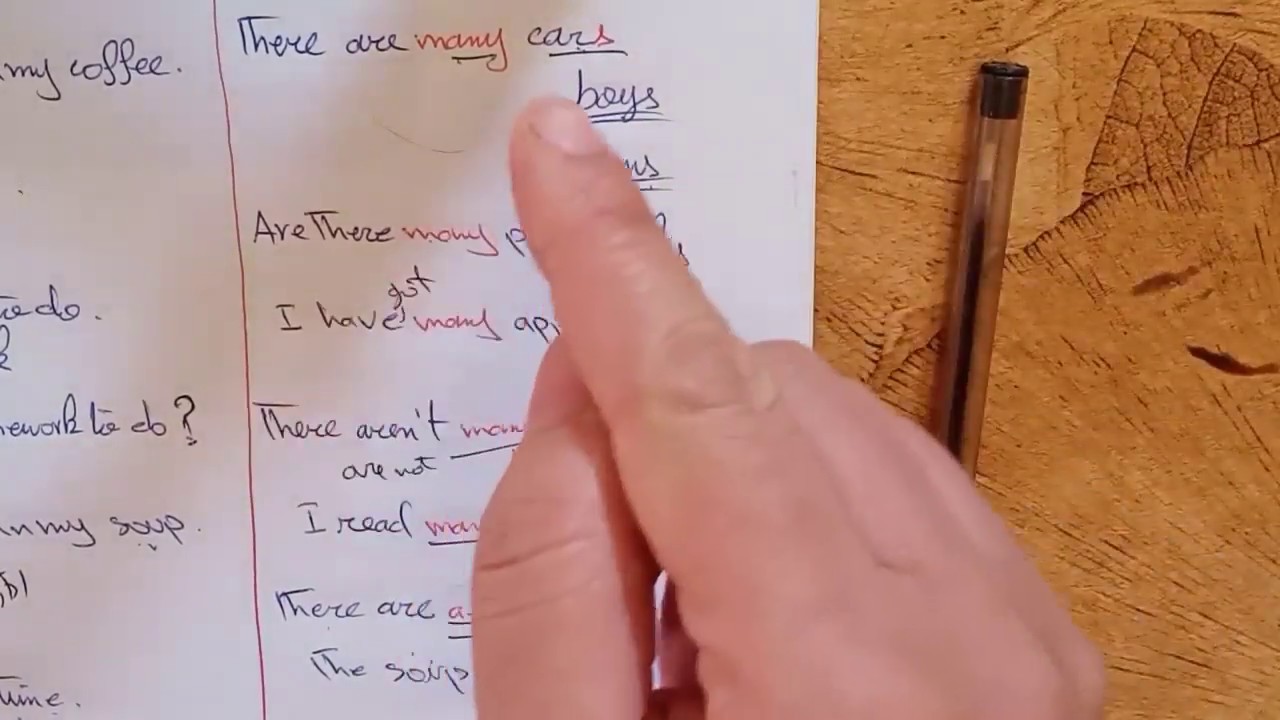 my coffee.
to do.
homework to do?
in my soup.
time.
There are many cars
boys
Are There many
got
I have many
There aren't many
are not
I read many
There are a
The soup